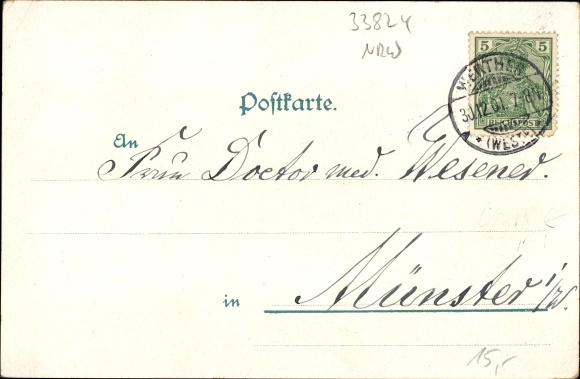 33824
NRW
5 5
WERTHER
30.12.01. 7-8
* (WESTF.)
Postkarte.
An Frau Doctor med. Wesener.
in Münster i/W.
15,-